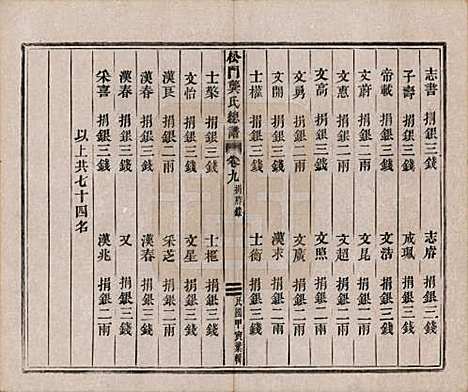 志書 捐銀三錢 志府 捐銀三錢
子壽 捐銀三錢 成珮 捐銀三錢
帝載 捐銀三錢 文浩 捐銀三錢
文蔚 捐銀二兩 文昆 捐銀三錢
文惠 捐銀三錢 文超 捐銀二兩
文高 捐銀三錢 文照 捐銀三錢
文勇 捐銀三錢 文廣 捐銀二兩
文開 捐銀三錢 漢求 捐銀三錢
士權 捐銀三錢 士衡 捐銀三錢
松門龔氏總譜 卷九 捐貲錄 民國甲寅彙輯
士榮 捐銀三錢 士樞 捐銀三錢
文怡 捐銀三錢 文星 捐銀三錢
漢良 捐銀二兩 采芝 捐銀二兩
漢春 捐銀三錢 漢春 捐銀三錢
漢春 捐銀三錢 又 捐銀三錢
采喜 捐銀三錢 漢兆 捐銀二兩
以上共七十四名